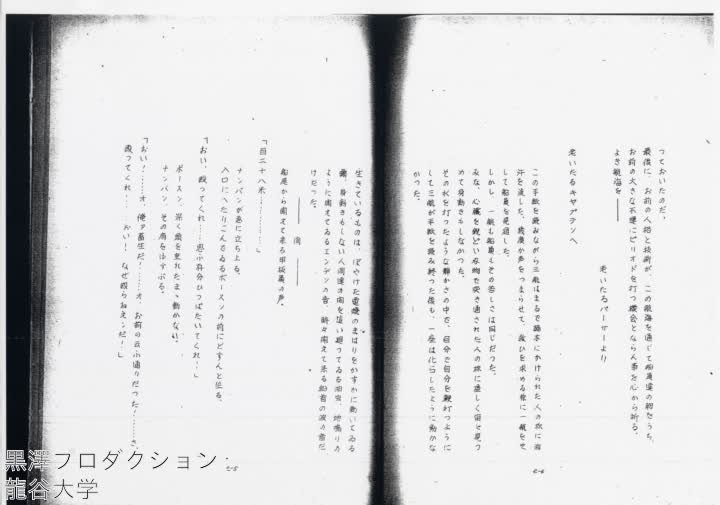 つておいたのだ。
最後に、お前の人格と技術が、この航海を通じて船員達の胸をうち、
お前の大きな不運にピリオドを打つ機会とならん事を心から祈る。
よき航海を――
老いたるパーサーより
老いたるキヤプテンへ
この手紙を読みながら三瓶はまるで拷本にかけられた人の様に
汗を流した。
して船員を見廻した。
しかし、一瓶も船員もその苦しさは同じだつた。
みな、心臓を鋭どい刃物で突き通された人の様に虚しく目を見つ
めて身動きもしなかつた。
その水を打つたような静かさの中で、自分で自分を鞭打つように
して三瓶が手紙を読み終つた後も、一座は化石したように動かな
かつた。
―― 間 ――
生きているものは、ぼやけた電燈のまはりをかすかに動いてゐる
身動きもしない人間達の間を這い廻つてゐる油虫、地鳴りの
ように聞えてゐるエンヂンの音、時々聞えて来る船首の波の音だ
けだつた。
船尾から聞えて来る甲板員の声。
「百二十八米…………」
ナンバンが急に立ち上る。
入口にへたりこんでゐるボースンの前にどすんと坐る。
「おい、殴つてくれ……思ふ存分ひつぱたいてくれ…！」
ボースン、深く頭を垂れたまゝ動かない。
ナンバン、その肩をゆすぶる。
「おい！……オ、俺ヲ畜生だ！……オ、お前の云ふ通りだつた！……さ、
殴つてくれ！……おい！なぜ殴らねえンだ！」
C-6
C-5
黒澤プロダクション・
龍谷大学